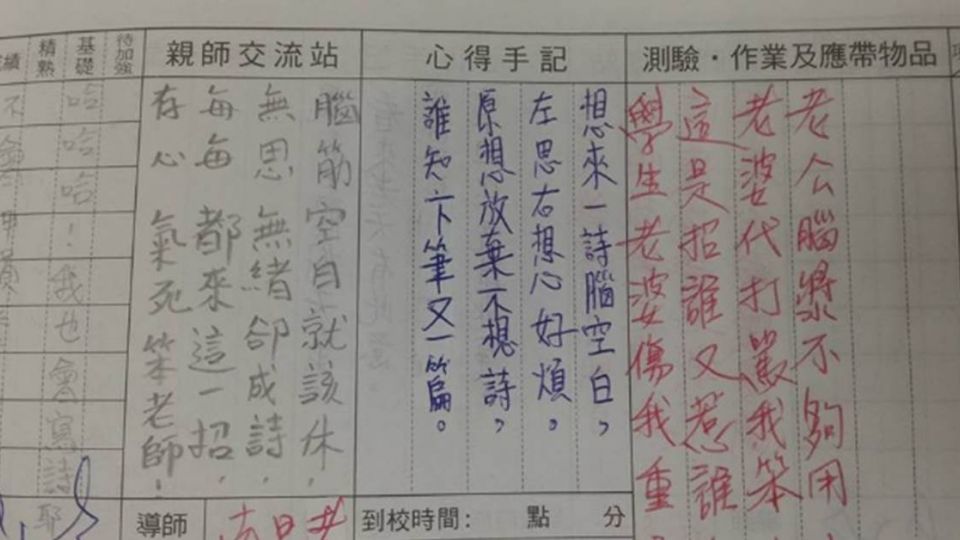 測驗．作業及應帶物品
老公腦漿不夠用
老婆代打罵我笨
這是招誰又惹誰
學生老婆傷我重
心得手記
想來一詩腦空白，
左思右想心好煩。
原想放棄不想詩，
誰知下筆又一篇。
親師交流站
腦筋空白就該休，
無思無緒卻成詩，
每每都來這一招，
存心氣死笨老師！
待加強
基礎
精熟
哈哈哈！我也會寫詩耶
導師
到校時間： 點 分